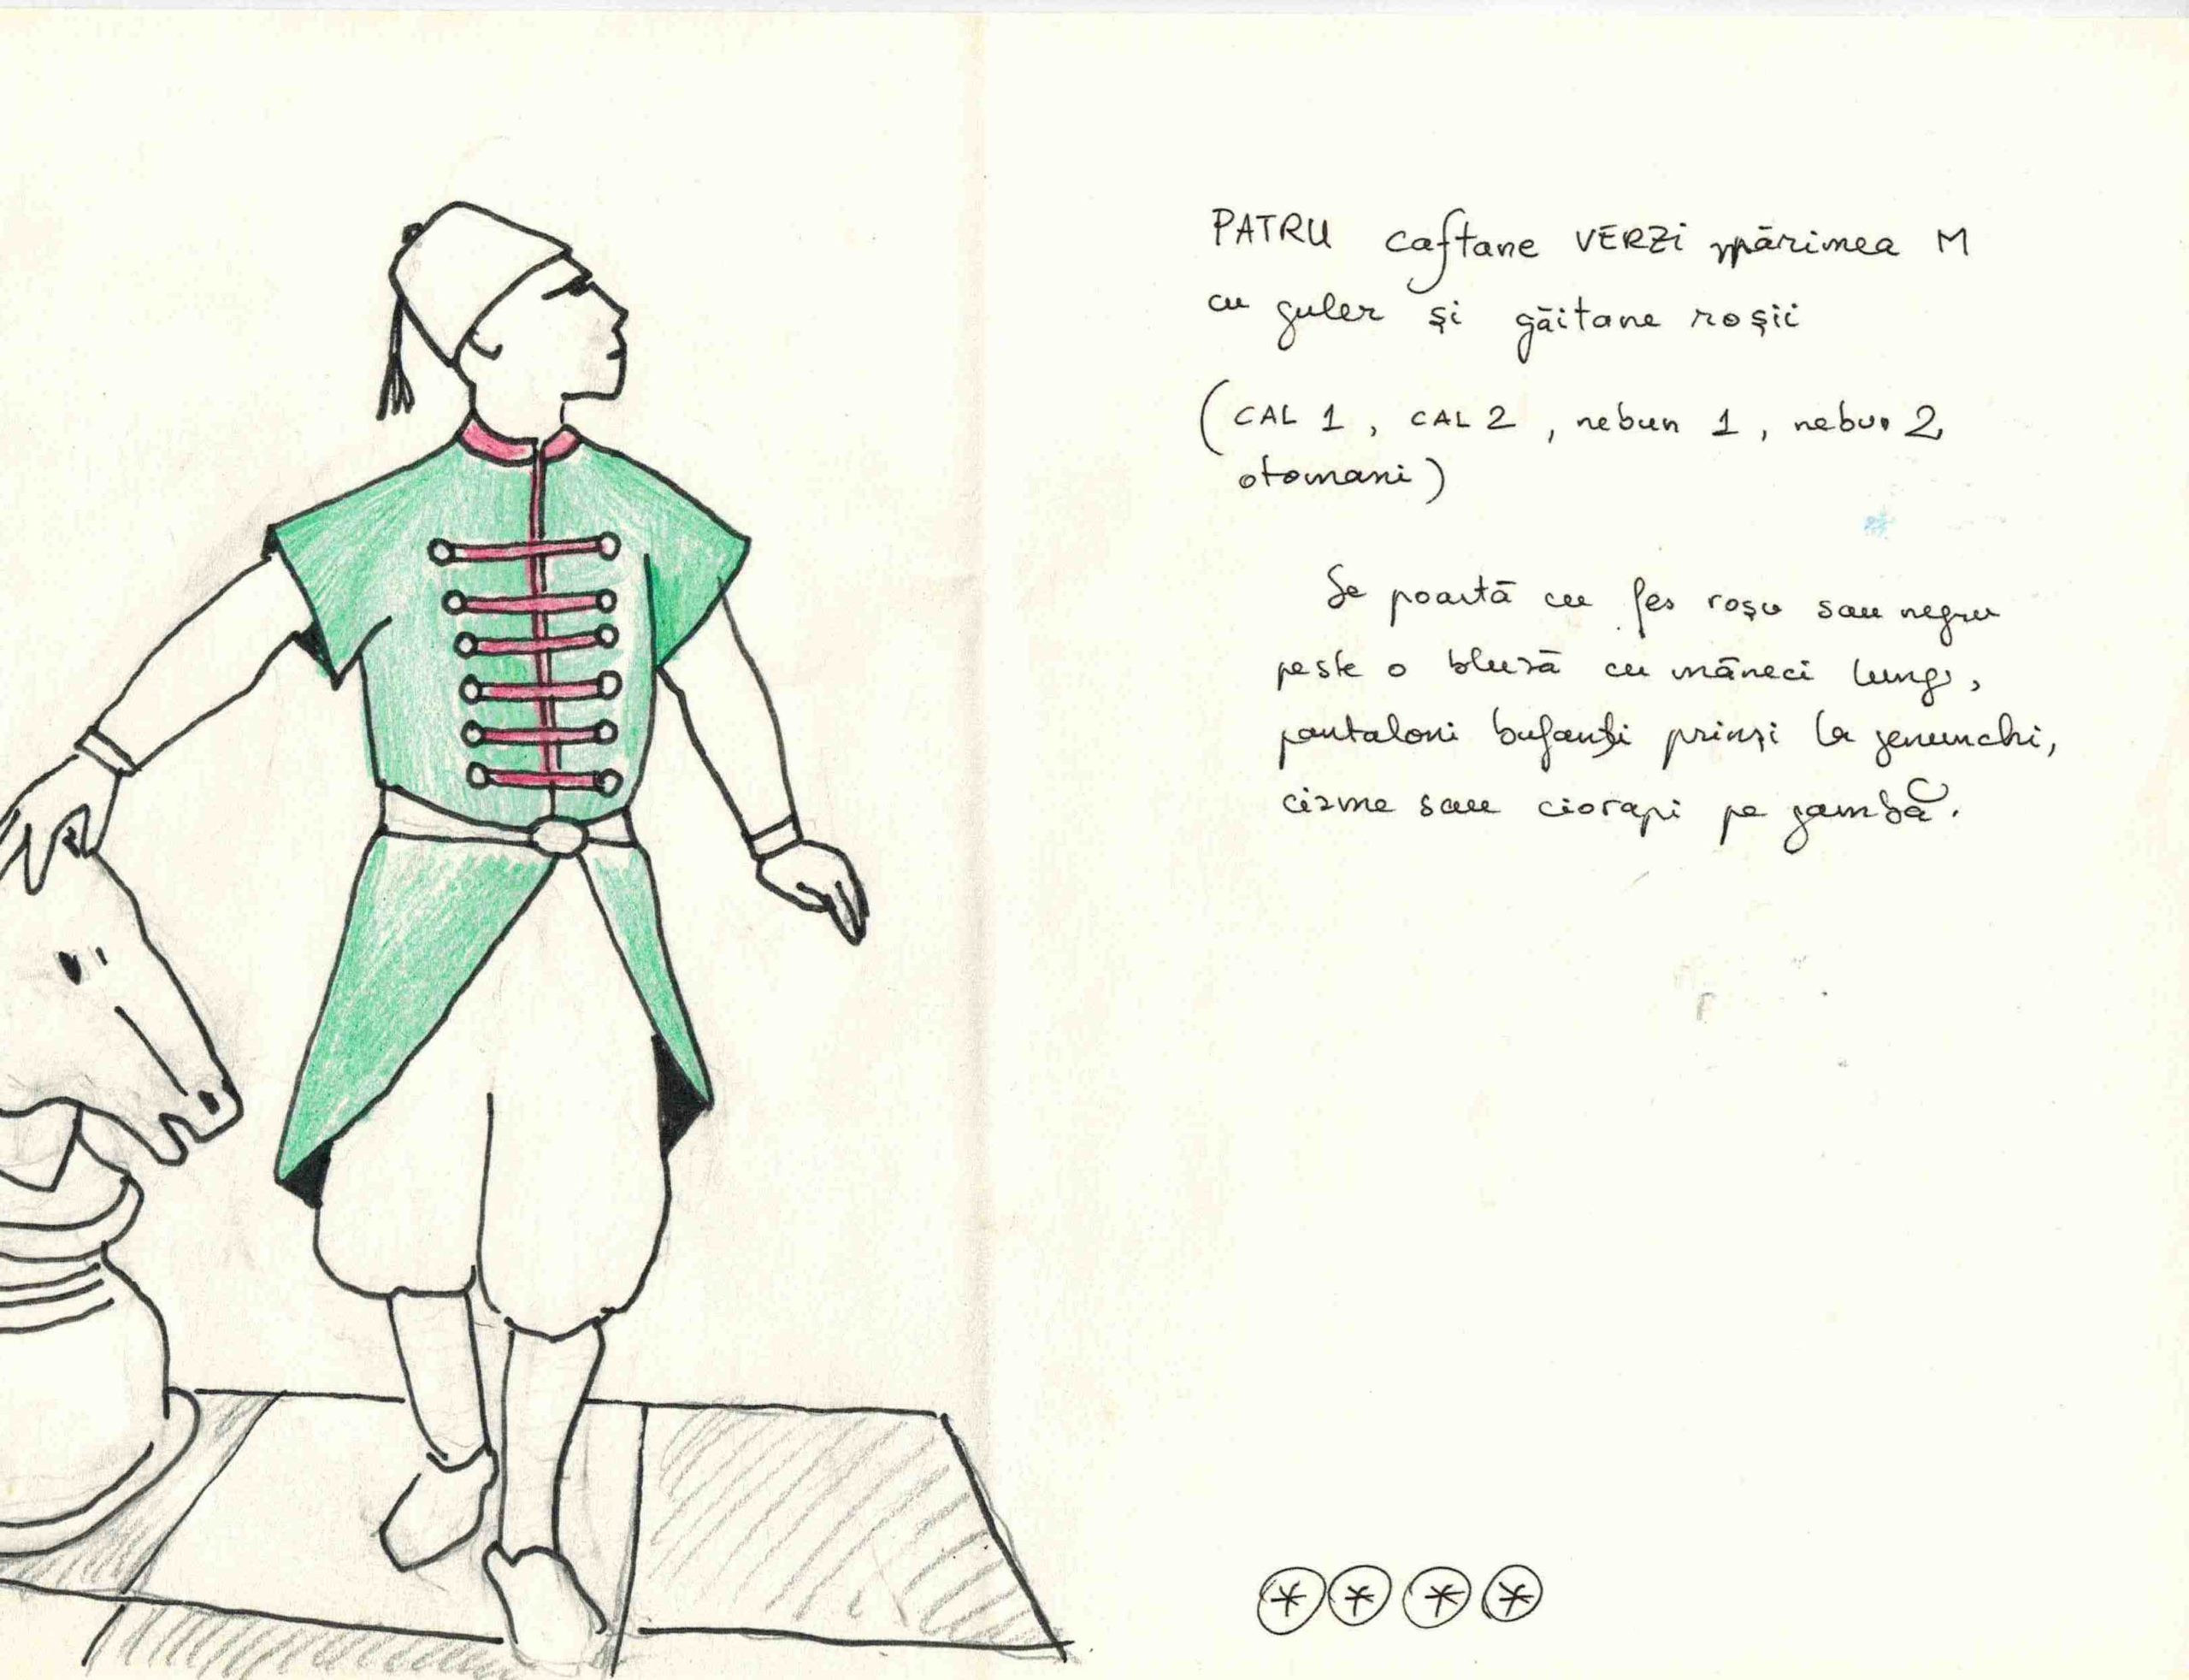 PATRU caftane VERZI mărimea M
cu guler și găitane roșii
(CAL 1, CAL 2, nebun 1, nebun 2
otomani)
Se poartă cu fes roșu sau negru
peste o bluză cu mâneci lungi,
pantaloni bufanți prinși la genunchi,
cizme sau ciorapi pe gambă.